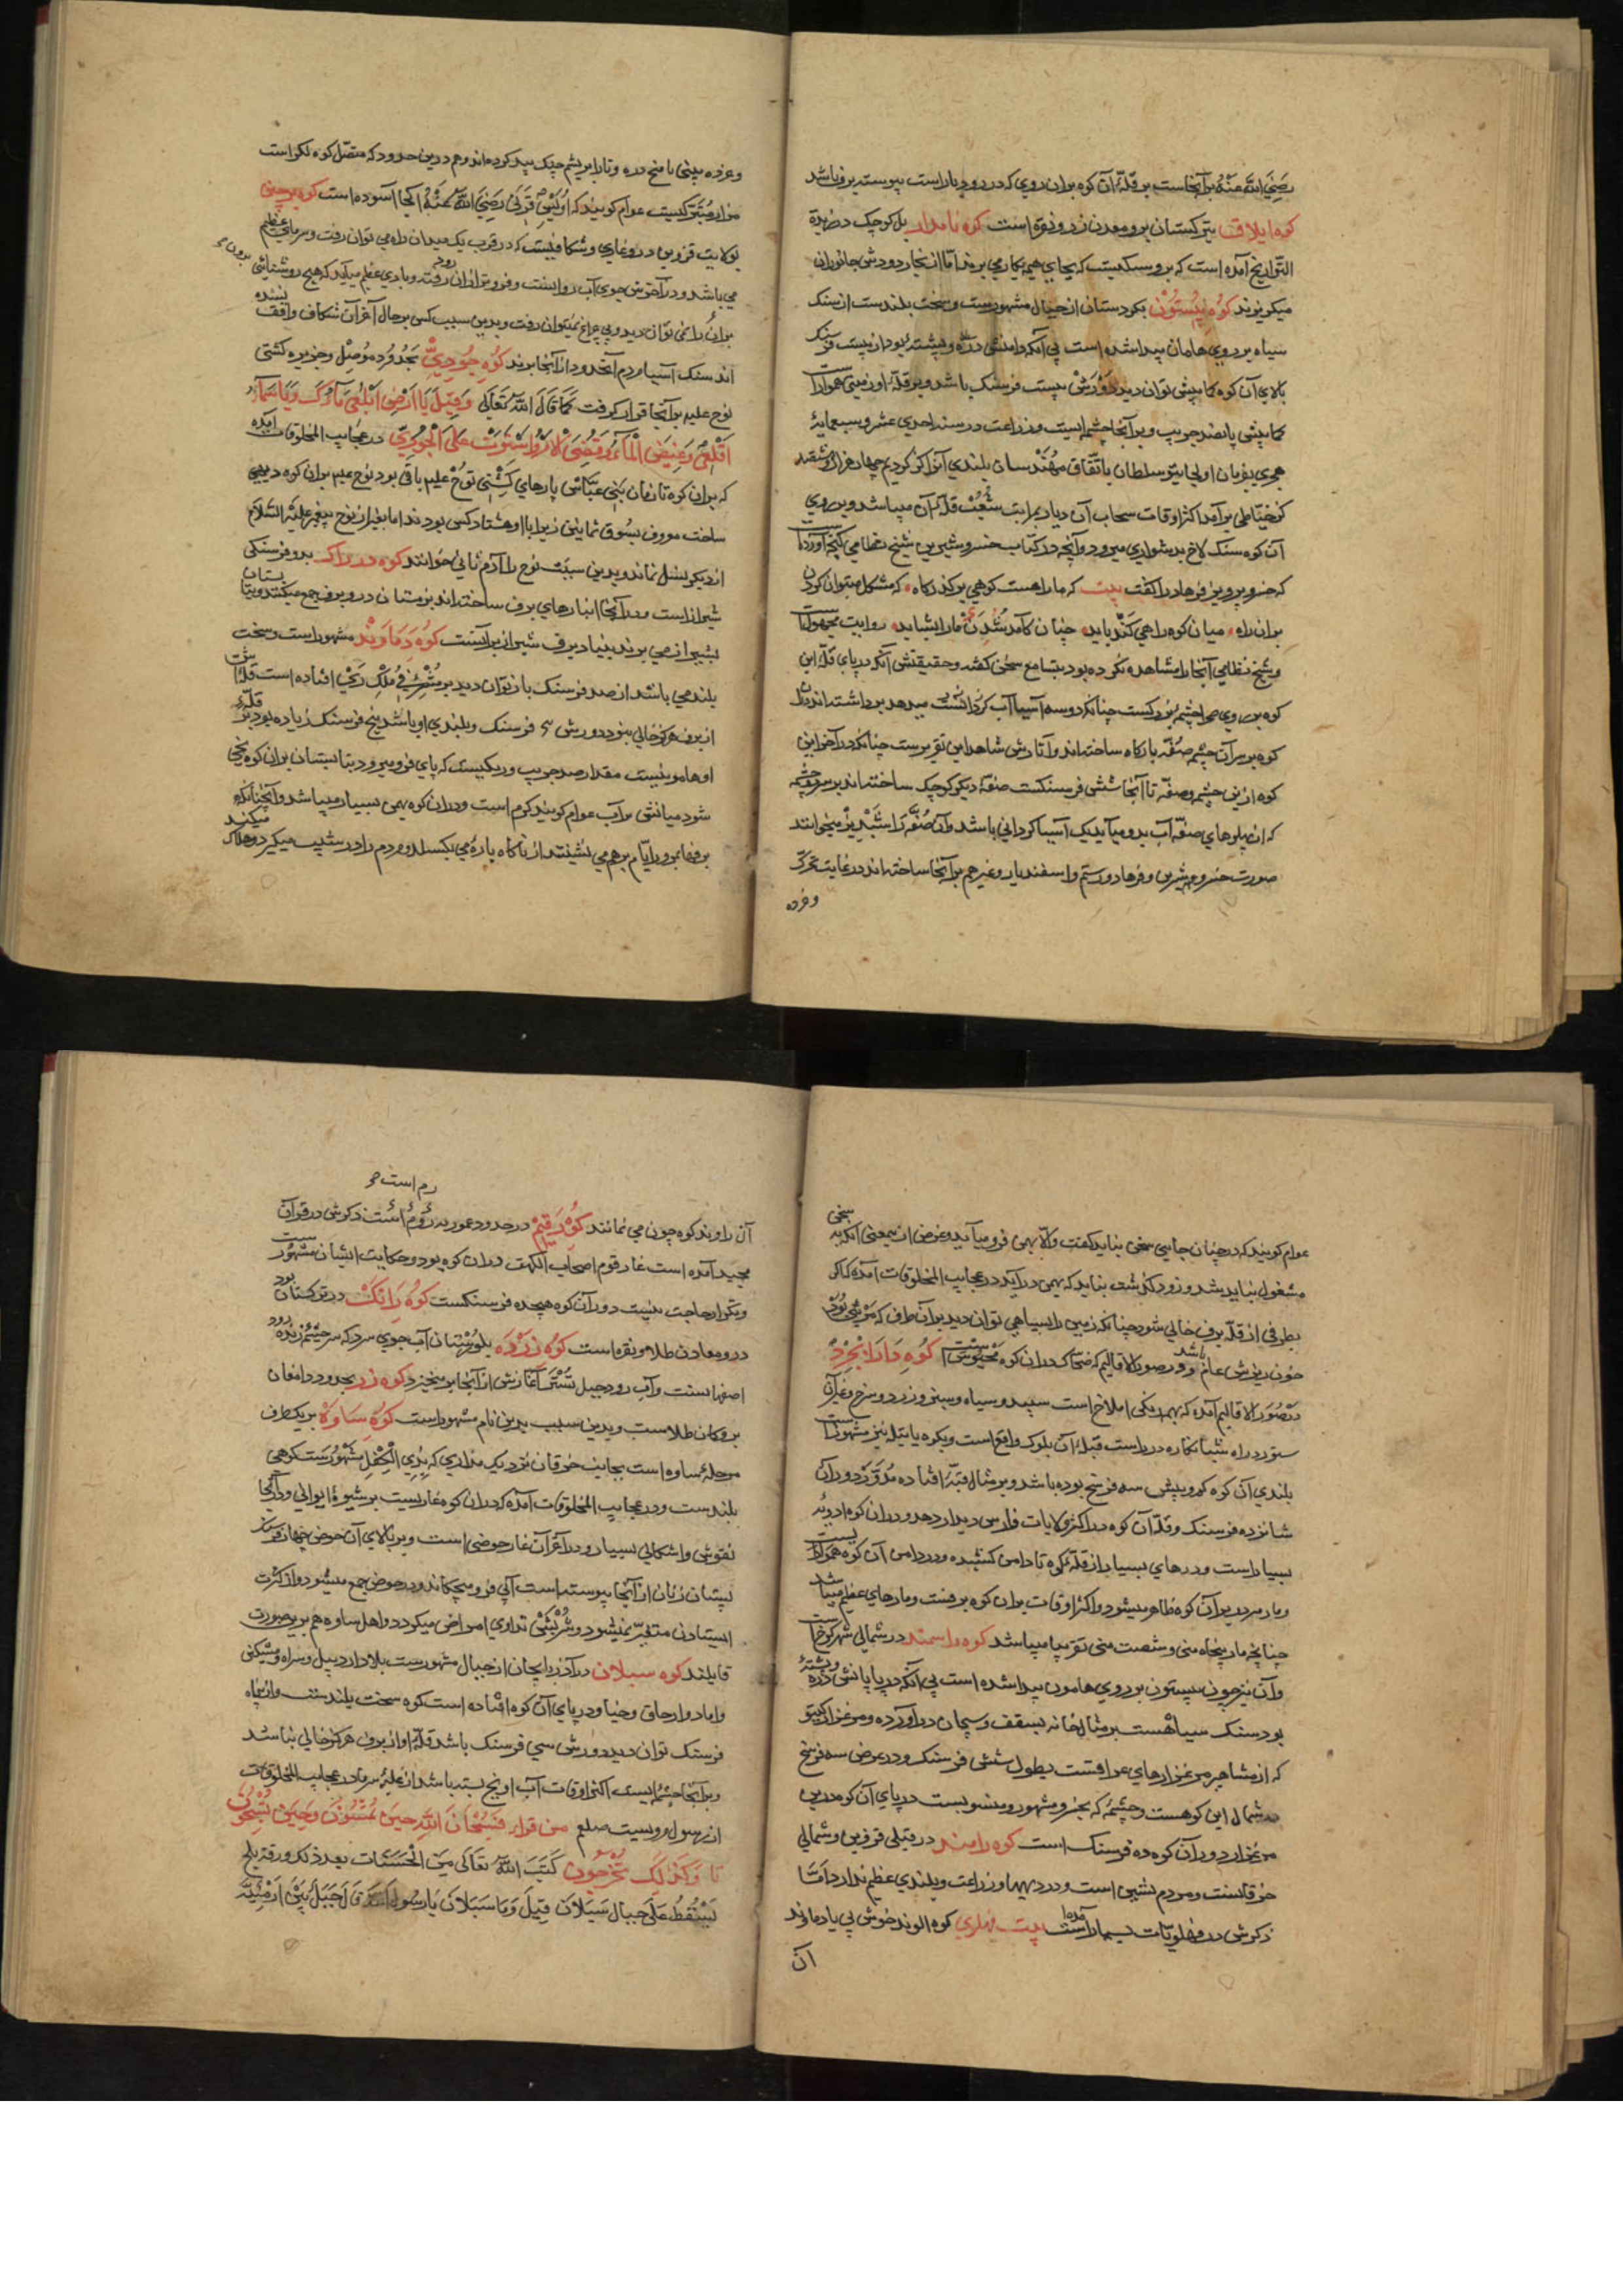 رَضِیَ اللهُ عَنْهُ برآنجاست بر قلّهٔ آن کوه بران روی که در رودبار است پیوسته برف باشد
کوه ایلاق بترکستان برو معدن زر و نقره است کوه نامدار بل کوچک در زبدة
التّواریخ آمده است که برو سنگیست که بجای هیمه بکار می برند امّا از بخار دودش جانوران
میگریزند کُوهِ بِیسُتُونْ بکردستان از جبال مشهورست و سخت بلندست از سنک
سیاه بر روی هامان پیدا شده است بی آنکه دامنش درّه و پشته بُود از بیست فرسنک
بالای آن کوه کمابیش توان دید دَوْرَشْ بیست فرسنک باشد و بر قلّه او زمینی هموارست
کمابیش پانصد جریب و برآنجا چشمه ایست و زراعت در سنه احدی عشر و سبعمایهٔ
هجری بفرمان اولجایتو سلطان باتّفاق مهُنْدسان بلندی آنرا کز کردیم چهار هزار و ششصد
کز خیّاطی برآمد اکثر اوقات سحاب آن دیار بمرابت شُعُبْ قلّه آن میباشد و بر روی
آن کوه سنک لاخ بدشواری میرود و آنچه در کتاب خسرو شیرین شیخ نظامی کنجه آورده است
که خسرو پرویز فرهاد را کفت بیت که ما را هست کوهی بر کذرکاه ۰ که مشکل میتوان کردن
بران راه ۰ میان کوه راهی کَنْد باید ۰ چنان کآمد شُدَنْ ما را بشاید ۰ روایت مجهولست
و شیخ نظامی آنجا را مشاهده نکرده بود بتسامع سخن کفته و حقیقتش آنکه در پای قلّه این
کوه بر روی صحرا چشمه بزرکست چنانکه دو سه آسیا آب کردانست میدهد برداشته اند و ازان
کوه بر سر آن چشمه صُفّه بارکاه ساخته اند و آثارش شاهد این تقریرست چنانکه در آخر این
کوه ازین چشمه و صفّه تا آنجا شش فرسنکست صفّهٔ دیکر کوچک ساخته اند بر سر دو چشمه
که از پهلوهای صفّه آب برو میآید یک آسیا کردانی باشد و آن صُفّه را شَبْدِیزْ میخوانند
صورت خسرو و شیرین و فرهاد و رستم و اسفندیار و غیرهم برآنجا ساخته اند در غایت تحرّک
و خرده
و خرده بینی با منح دره و تار ابریشم چنک پیدا کرده اند و هم درین حدود که متصّل کوه لکز است
مزار متبرّکیست عوام کویند که اُوَیْسِ قَرَنی رَضِیَ اللهُ عَنْهُ آنجا آسوده است کوه برجین
بولایت قزوین درو غاری و شکافیست که در قرب یک میدان راه می توان رفت و سرمای عظیم
می باشد و در آخرش جوی آب روانست و فروتر ازان رفته و بادی عظیم میآید که هیچ روشنائی برون
بران را نمی توان دید و بی چراغ نمیتوان رفت و بدین سبب کس بر حال آخر آن شکاف واقف نشده
اند سنک آسیا مردم آنحدود از آنجا برند کُوه جُودِیّ بحُدُود مُوصِل و جزیره کشتی
نوح علیه برآنجا قرار کرفت کَمَا قَالَ اللهُ تَعَالَی وَقِیلَ یَا اَرْضُ ابْلَعِی مَاءَکِ وَیَا سَمَاءُ
اَقْلِعِی وَغِیضَ الْمَاءُ وَقُضِیَ الْاَمْرُ وَاسْتَوَتْ عَلَی الْجُودِیِّ در عجایب المخلوقات آمده
که بران کوه تا زمان بَنی عبّاس پارهای کِشتی نوح علیه باقی بود نوح علیه بران کوه دیهی
ساخت معروف بسُوق ثمانین زیرا با او هشتاد کس بودند اما بغیر از نوح پیغمبر عَلَیْهِ السَّلَامُ
از دیکر نسل نماند و بدین سبب نوح را آدم ثانی خوانند کوه در راک بدو فرسنکی
شیراز است و در آنجا انبارهای برف ساخته اند بزمستان درو برف جمع میکنند و بتابستان
بشیراز می برند بنیاد برف شیراز بر آنست کُوه دَمَاوَنْد مشهورست و سخت
بلند می باشد از صد فرسنک باز توان دید بر مُشْرق فی مُلْکِ رَیّ افتاده است قلّه اش
از برف هرکز خالی نبود دورش س فرسنک و بلندی او باشد پنج فرسنک زیاده بود بر قلّهٔ
او هامونیست مقدار صد جریب و ریکیست که پای فرو میرود بتابستان بران کوه یخی
شود میانش پرآب عوام کویند کرم است و دران کوه بهمن بسیار میباشد و آنچنانکه
برفها بمرور ایّام برهم می نشینند از ناکاه پاره می بکسلد و مردم را در شیب میکیرد و هلاک میکند
عوام کویند که در چنان جایی سخن نباید کفت والّا بهمن فرو میآید و غرض ازینمعنی آنکه به سخن
مشغول نباید شد و زود کذشت نباید که بهمن درآید در عجایب المخلوقات آمده که اکر
بطرفی از قلّه برف خالی شود چنانکه زمین را بسیاهی توان دید بر آن طرف که مَرْئی بُوَدْ
خون ریزش عام باشد و در صور الاقالیم که ضحّاک دران کوه محبوس است کُوه دَارَابْجِرْدْ
در صُوَر الاقالیم آمده که بهر رنکی املاخ است سپید و سیاه و سبز و زرد و سرخ و غیرآن
ستور در راه شبانکاره در راست قبلهٔ آن بلوک واقع است و بکوه یاتیله نیز مشهورست
بلندی آن کوه کم و بیش سه فرسخ بوده باشد و بر مثال قبّه افتاده مُدَوَّرْ و دور آن
شانزده فرسنک و قلّه آن کوه در اکثر ولایات فارس دیدار دهد و دران کوه ادویه
بسیار است و درهای بسیار از قلّه کوه تا دامن کشیده و در دامن آن کوه هموارست
و بار مردن بر آن کوه ظاهر میشود و اکثر اوقات بران کوه برفست و مارهای عظیم میباشد
چنانچه مار پنجاه منی و شصت منی تقریبا میباشد کوه راسمند در شمالی شهر کرج است
و آن نیز چون بیستون بر روی هامون پیدا شده است بی آنکه در پایانش درّه و پشته
بود سنک سیاهست بر مثال خانه بسقف و سیمان درآورده و مرغزار کیتو
که از مشاهیر مرغزارهای عراقست بطول شش فرسنک و در عرض سه فرسخ
در شمال این کوهست و چشمهٔ که بخسرو مشهور و منسوبست در پای آن کوه درین
مرغزار دور آن کوه ده فرسنک است کوه رامند در قبلی قزوین و شمالی
خرقانست و مردم نشین است و در دیهها و زراعت و بلندی عظیم ندارد امّا
ذکرش در فهلویات بسیار آمده است بیت پهلوی کوه الوند خوش بی یاد ماوند
آن
رم است
آن راوند کوه چون می نمانند کُوه رَقِیمْ در حدود عموریه رُوم اُست ذکرش در قرآن
مجید آمده است غار قوم اصحاب الکهف دران کوه بود و حکایت ایشان مشهورست
و تکرار حاجت نیست دور آن کوه هیجده فرسنکست کُوه رَانَکْ در ترکستان بود
درو معادن طلا و نقره است کُوه زَرْدَه بلورستان آب جوی سرد که سرچشمهٔ زنده رود
اصفهانست و آب رود جبل تُسْتَر آغازش از آنجا برمیخیزد کوه زر بحدود دامغان
برو کان طلاست و بدین سبب بدین نام مشهورست کُوه سَاوَه بر یکطرف
مرحلهٔ ساوه است بجانب خرقان نزدیک مزاری که بِذِی الْکِفْلِ مَشْهُورَست کوهی
بلندست و در عجایب المخلوقات آمده که دران کوه غاریست بر شیوهٔ ایوانی و درآنجا
نقوش و اشکالی بسیار و در آخر آن غار حوضی است و بر بالای آن حوض چهار
پستان زنان از آنجا پیوسته است آبی فرو میچکاند و در حوض جمع میشود و از کثرت
ایستادن متغیّر نمیشود و شُرْبَشْ تداوی امراض میکردد و اهل ساوه هم برین صورت
قایلند کوه سبلان در آذربایجان از جبال مشهورست بلاد اردبیل و سراه و مشکین
و اباد و ارجاق و خیاو در پای آن کوه افتاده است کوه سخت بلندست و از پنجاه
فرسنک توان دید دورش سی فرسنک باشد قلّهٔ او از برف هرکز خالی نباشد
و برآنجا چشمه ایست اکثر اوقات آب او یخ بسته باشد از غلبهٔ سرما در عجایب المخلوقات
از رسول مرویست صلعم من قرار فَسُبْحَانَ اللهِ حِینَ تُمْسُونَ وَحِینَ تُصْبِحُونَ
تا وَکَذٰلِکَ تُخْرَجُونَ کَتَبَ اللهُ تَعَالَی مِنَ الْحَسَنَاتِ بعدد ذلک ورقة ثلج
تَسْقُطُ عَلَی جبال سَبَلَانَ قِیلَ وَمَا سَبَلَانُ یَا رَسُولَ اللهِ قَالَ جَبَلٌ بَیْنَ اَرْمَنِیَّة